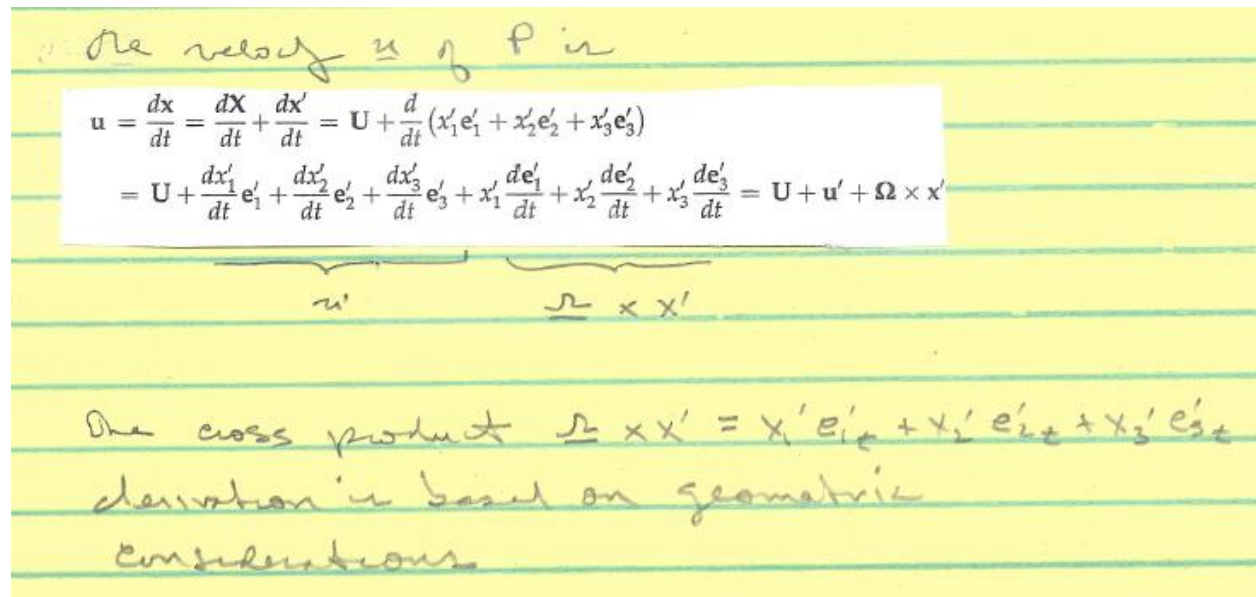 The velocity u of P is
u = dx/dt = dX/dt + dx′/dt = U + d/dt (x′₁e′₁ + x′₂e′₂ + x′₃e′₃)
= U + dx′₁/dt e′₁ + dx′₂/dt e′₂ + dx′₃/dt e′₃ + x′₁ de′₁/dt + x′₂ de′₂/dt + x′₃ de′₃/dt = U + u′ + Ω × x′
u′ Ω × x′
The cross product Ω × x′ = x₁′ e₁′t + x₂′ e₂′t + x₃′ e₃′t
derivation is based on geometric
considerations